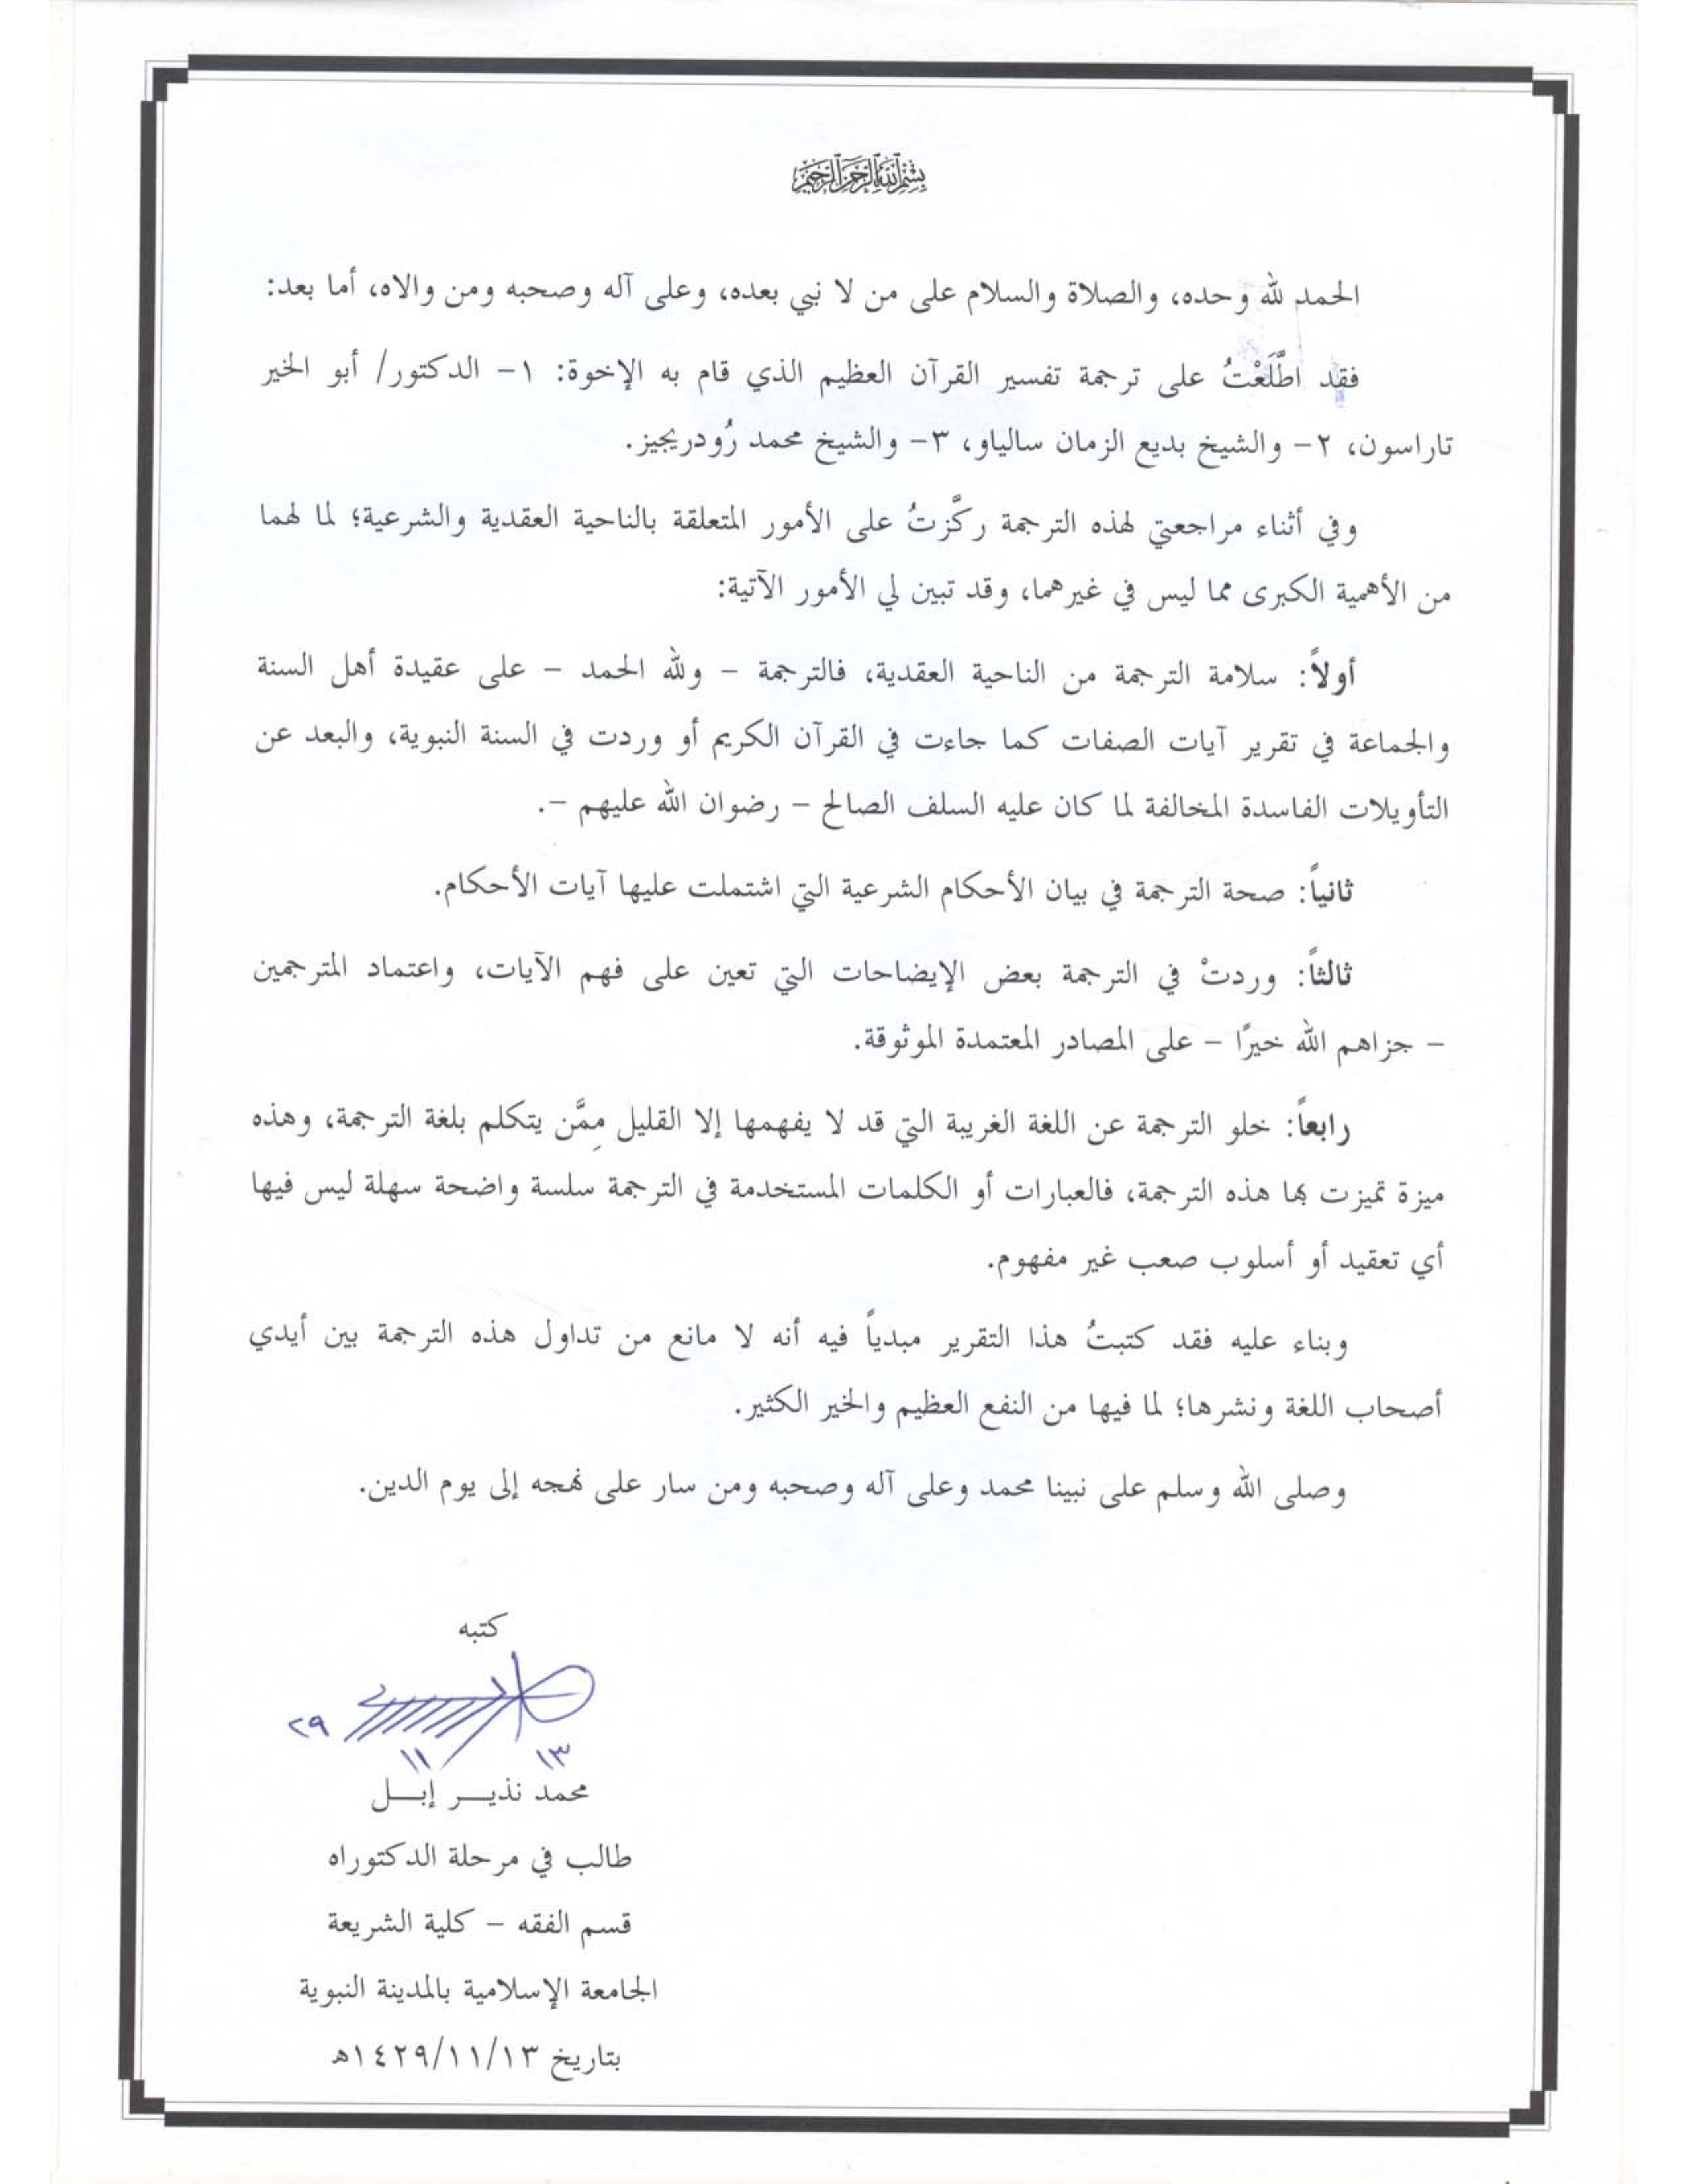 بسم الله الرحمن الرحيم
الحمد لله وحده، والصلاة والسلام على من لا نبي بعده، وعلى آله وصحبه ومن والاه، أما بعد:
فقد اطَّلَعْتُ على ترجمة تفسير القرآن العظيم الذي قام به الإخوة: ١- الدكتور/ أبو الخير
تاراسون، ٢- والشيخ بديع الزمان سالياو، ٣- والشيخ محمد رُودريجيز.
وفي أثناء مراجعتي لهذه الترجمة ركَّزتُ على الأمور المتعلقة بالناحية العقدية والشرعية؛ لما لهما
من الأهمية الكبرى مما ليس في غيرهما، وقد تبين لي الأمور الآتية:
أولاً: سلامة الترجمة من الناحية العقدية، فالترجمة – ولله الحمد – على عقيدة أهل السنة
والجماعة في تقرير آيات الصفات كما جاءت في القرآن الكريم أو وردت في السنة النبوية، والبعد عن
التأويلات الفاسدة المخالفة لما كان عليه السلف الصالح – رضوان الله عليهم –.
ثانياً: صحة الترجمة في بيان الأحكام الشرعية التي اشتملت عليها آيات الأحكام.
ثالثاً: وردتْ في الترجمة بعض الإيضاحات التي تعين على فهم الآيات، واعتماد المترجمين
– جزاهم الله خيرًا – على المصادر المعتمدة الموثوقة.
رابعاً: خلو الترجمة عن اللغة الغريبة التي قد لا يفهمها إلا القليل مِمَّن يتكلم بلغة الترجمة، وهذه
ميزة تميزت بها هذه الترجمة، فالعبارات أو الكلمات المستخدمة في الترجمة سلسة واضحة سهلة ليس فيها
أي تعقيد أو أسلوب صعب غير مفهوم.
وبناء عليه فقد كتبتُ هذا التقرير مبدياً فيه أنه لا مانع من تداول هذه الترجمة بين أيدي
أصحاب اللغة ونشرها؛ لما فيها من النفع العظيم والخير الكثير.
وصلى الله وسلم على نبينا محمد وعلى آله وصحبه ومن سار على نهجه إلى يوم الدين.
كتبه
١٣ ١١ ٢٩
محمد نذيـــر إبـــل
طالب في مرحلة الدكتوراه
قسم الفقه – كلية الشريعة
الجامعة الإسلامية بالمدينة النبوية
بتاريخ ١٤٢٩/١١/١٣هـ